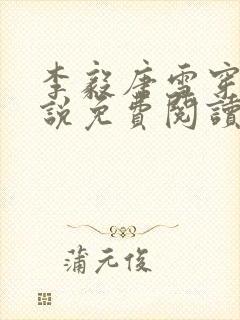 李毅唐雪穿
說免費閱讀
蒲元俊